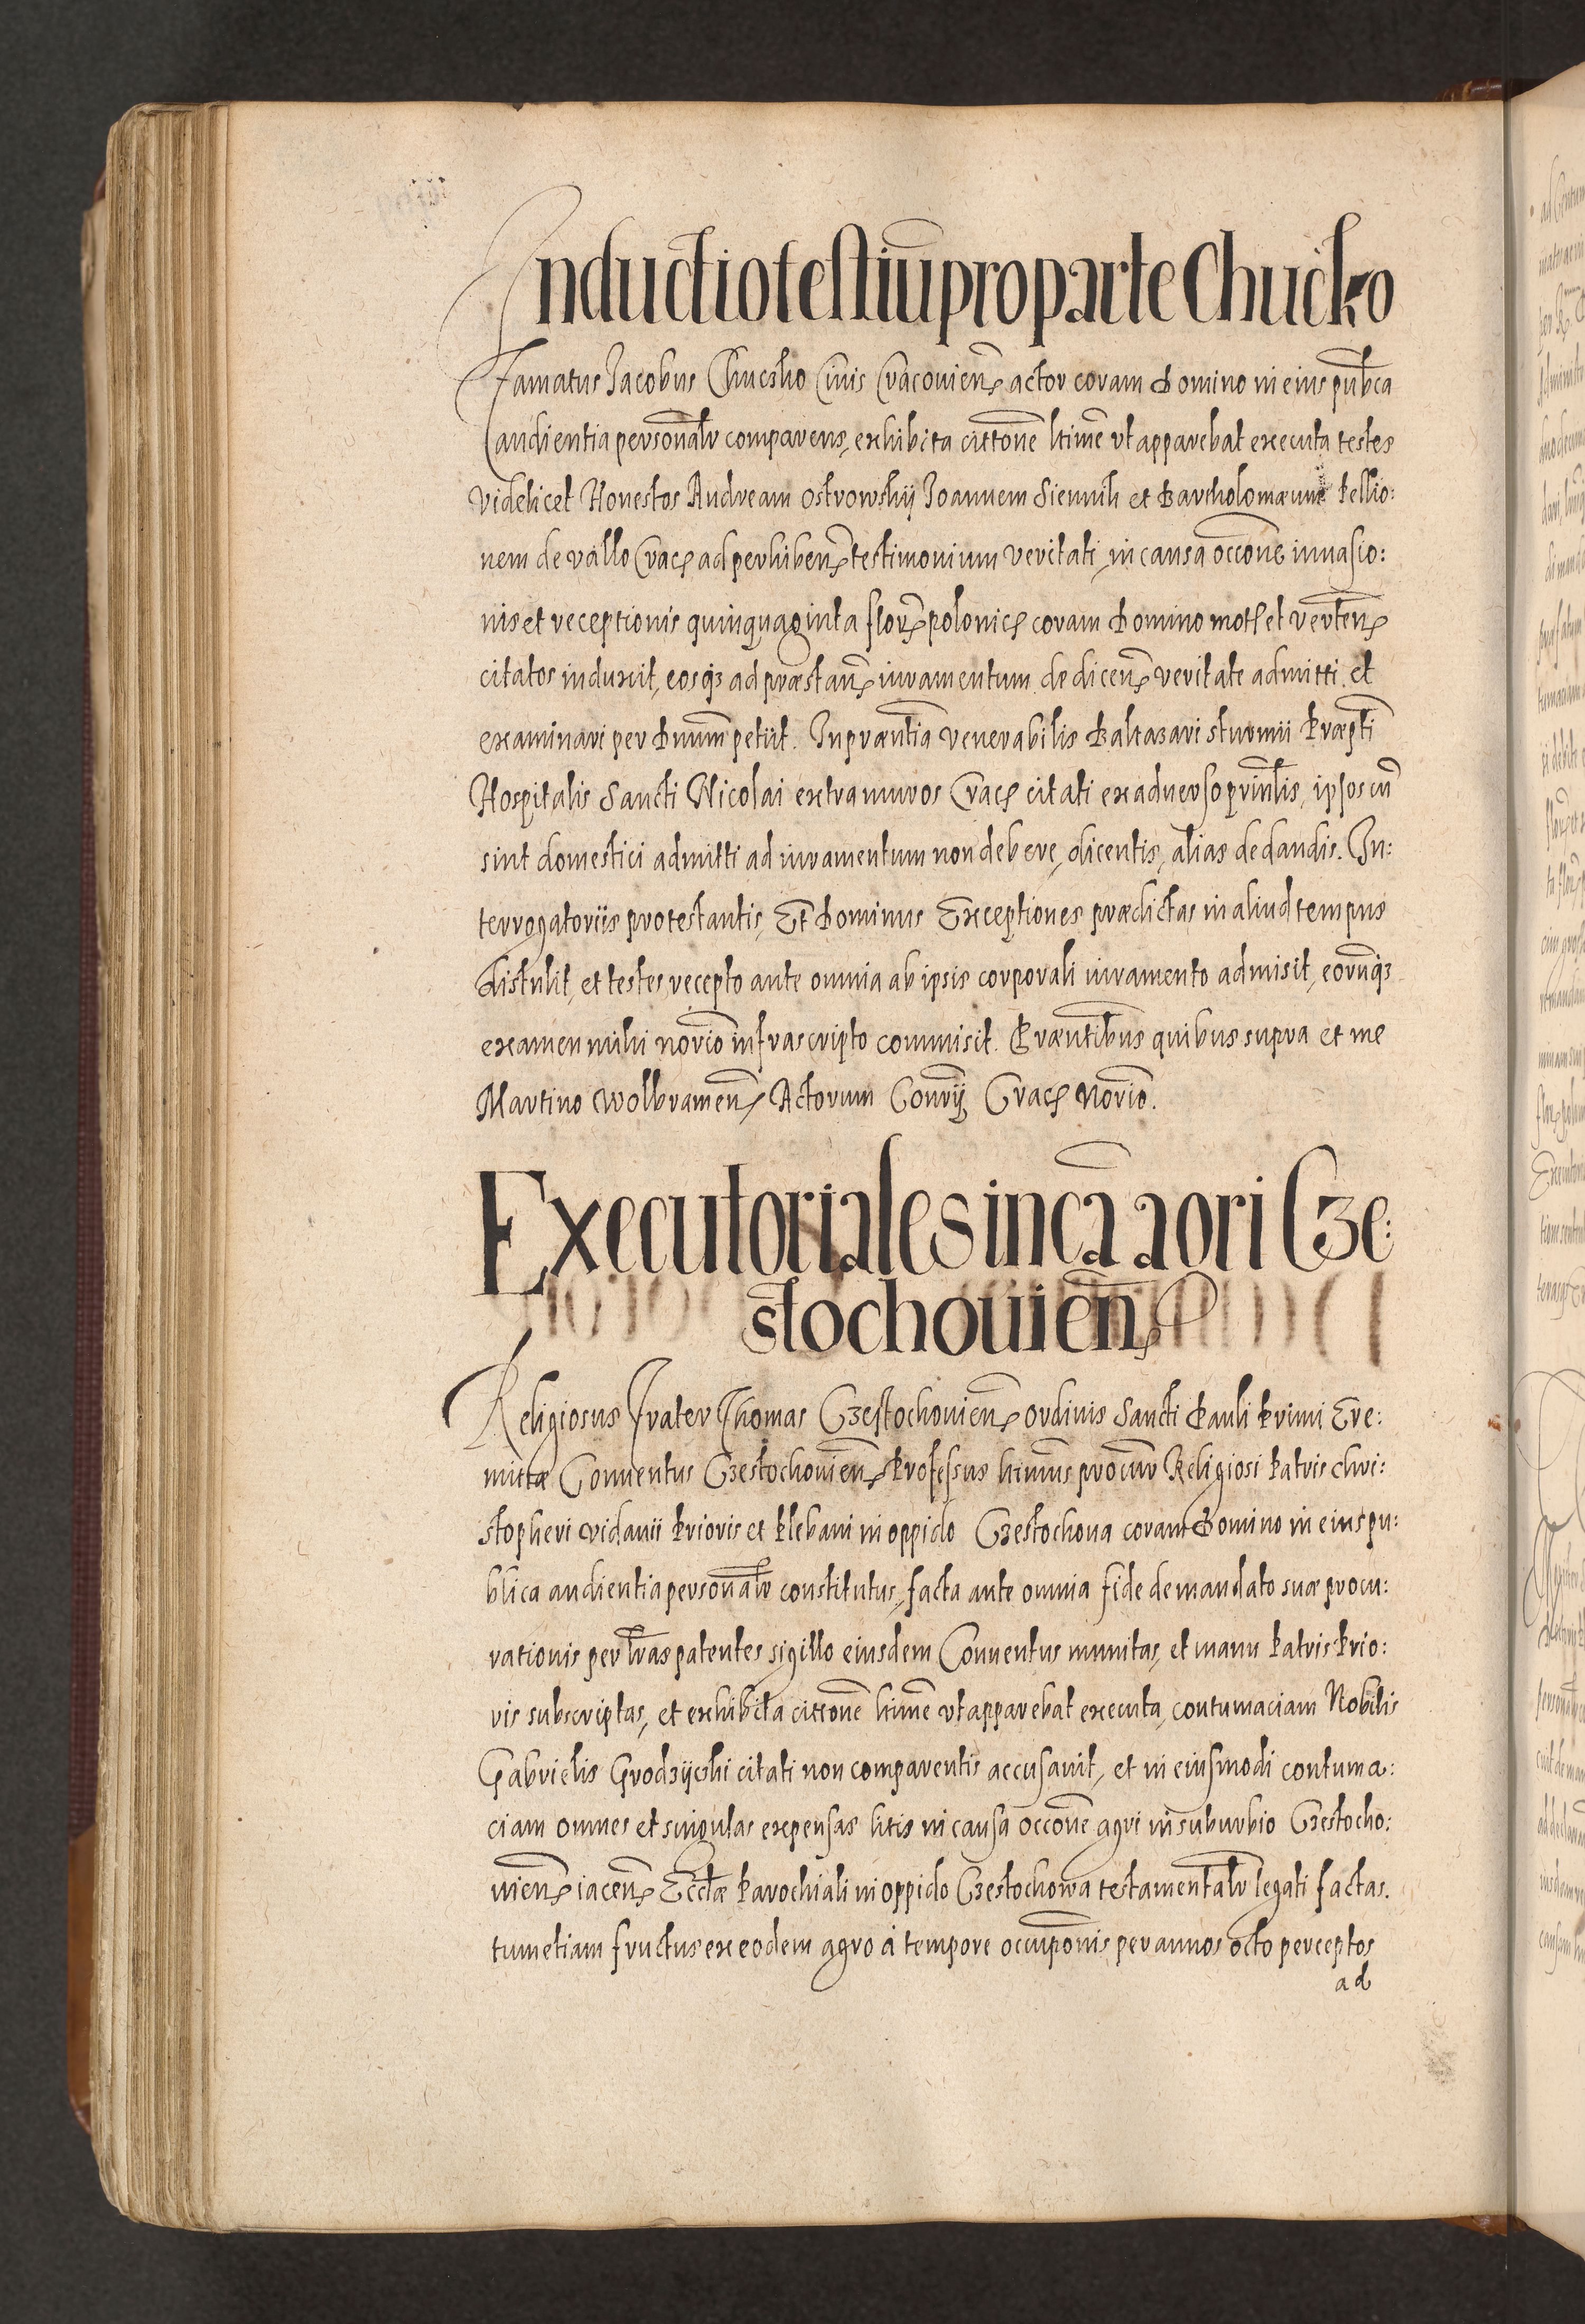 Inductio testiũ pro parte Chuczko
Famatus Jacobus Chuczko Civis Cracovieñ actor coram Domino in eius publca
audientia personalr comparens, exhibita cittone ltime vt apparebat executa testes
videlicet Honestos Andream Ostrowskij Joannem Siennik et Bartholomæum Pellio:
nem de vallo Crac̃ ad perhibeñ testimonium veritati, in causa occone inuasio:
nis et receptionis quinquaginta floreñ polonic̃ coram Domino mot̃ et verteñ
citatos induxit, eosq3 ad præstañ iuramentum de diceñ veritate admitti et
examinari per Dnum petiit. In præntia venerabilis Baltazari Sturmii Præpti
Hospitalis Sancti Nicolai extra muros Crac̃ citati ex aduerso prinlis, ipsos cũ
sint domestici admitti ad iuramentum non debere, dicentis, alias de dandis. In:
terrogatoriis protestantis, Et Dominus Exceptiones prædictas in aliud tempus
distulit, et testes, recepto ante omnia ab ipsis corporali iuramento admisit, eorunq3
examen mihi norio infrascripto commisit. Præntibus quibus supra et me
Martino Wolbrameñ Actorum Conrij Crac̃ Norio.
Executoriales in cã aori Cze:
stochouieñ
Religiosus Frater Thomas Czestochouieñ ordinis Sancti Pauli Primi Ere:
mittæ Conuentus Czestochouieñ Professus ltimus procur Religiosi Patris Chri:
stopheri Vidauii Prioris et Plebani in oppido Czestochoua coram Domino in eius pu:
blica audientia personalr constitutus, facta ante omnia fide de mandato suæ procu:
rationis per lras patentes sigillo eiusdem Conuentus munitas, et manu Patris Prio:
ris subscriptas, et exhibita cittone ltime vt apparebat executa, contumaciam Nobilis
Gabrielis Grodzijcki citati non comparentis accusauit, et in eiusmodi contuma:
ciam omnes et singulas expensas litis in causa occone agri in suburbio Czestocho:
uieñ iaceñ Ecclæ Parochiali in oppido Czestochowa testamentalr legati factas.
tum etiam fructus ex eodem agro à tempore occuponis per annos octo perceptos
ad